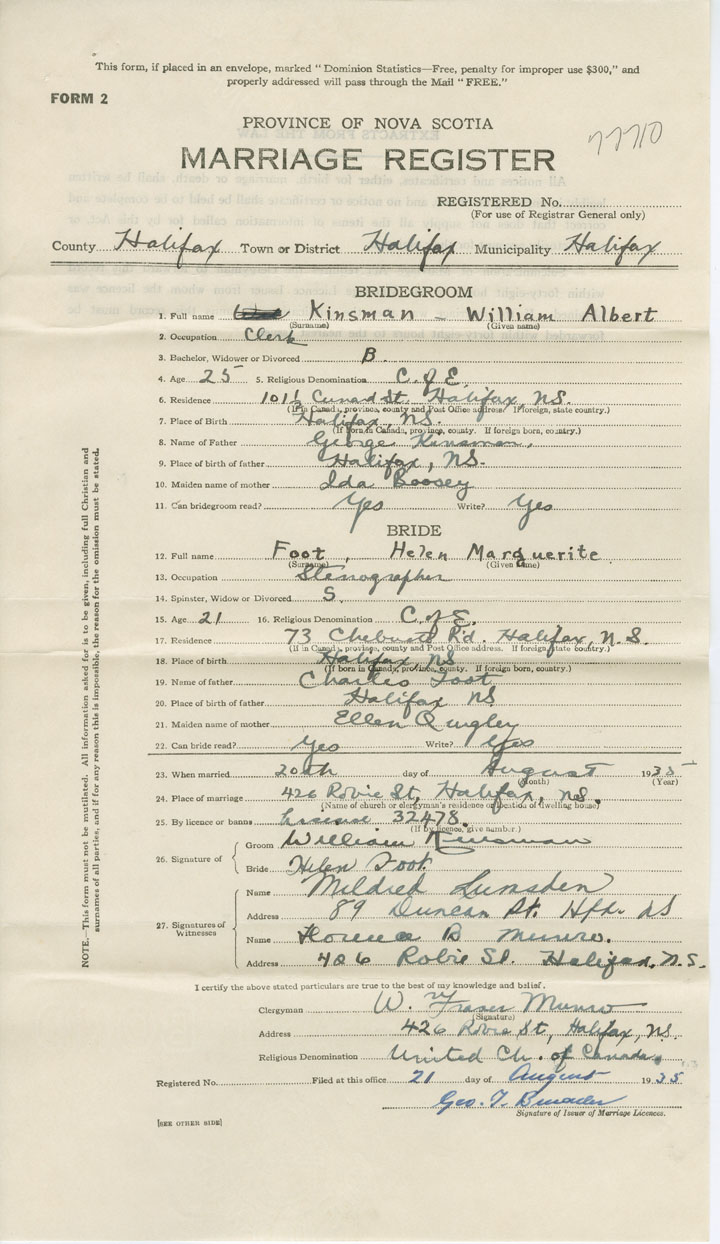 This form, if placed in an envelope, marked “ Dominion Statistics—Free, penalty for improper use $300,” and
properly addressed will pass through the Mail “FREE.”
FORM 2
PROVINCE OF NOVA SCOTIA
77710
MARRIAGE REGISTER
REGISTERED No.
(For use of Registrar General only)
County Halifax Town or District Halifax Municipality Halifax
BRIDEGROOM
1. Full name Kinsman - William Albert
(Surname) (Given name)
2. Occupation Clerk
3. Bachelor, Widower or Divorced B.
4. Age 25 5. Religious Denomination C. of E.
6. Residence 101½ Cunard St. Halifax, N.S.
(If in Canada, province, county and Post Office address. If foreign, state country.)
7. Place of Birth Halifax, N.S.
(If born in Canada, province, county. If foreign born, country.)
8. Name of Father George Kinsman,
9. Place of birth of father Halifax, N.S.
10. Maiden name of mother Ida Boosey
11. Can bridegroom read? Yes Write? Yes
BRIDE
12. Full name Foot, Helen Marguerite
(Surname) (Given name)
13. Occupation Stenographer
14. Spinster, Widow or Divorced S.
15. Age 21 16. Religious Denomination C. of E.
17. Residence 73 Chebucto Rd. Halifax, N.S.
(If in Canada, province, county and Post Office address. If foreign, state country.)
18. Place of birth Halifax, NS
(If born in Canada, province, county. If foreign born, country.)
19. Name of father Charles Foot
20. Place of birth of father Halifax NS
21. Maiden name of mother Ellen Quigley
22. Can bride read? Yes Write? Yes
23. When married 20th day of August 1935
(Month) (Year)
24. Place of marriage 426 Robie St, Halifax, N.S.
(Name of church or clergyman's residence or location of dwelling house)
25. By licence or banns License 32478.
(If by licence, give number.)
26. Signature of
Groom William Kinsman
Bride Helen Foot
27. Signatures of Witnesses
Name Mildred Lumsden
Address 89 Duncan St. Hfx. NS
Name Florence B Munro.
Address 406 Robie St. Halifax, N.S.
I certify the above stated particulars are true to the best of my knowledge and belief.
Clergyman W. Fraser Munro
(Signature)
Address 426 Robie St, Halifax, N.S.
Religious Denomination United Ch. of Canada.
Registered No. Filed at this office 21 day of August 1935
Geo. T.
Signature of Issuer of Marriage Licences.
[SEE OTHER SIDE]
NOTE.—This form must not be mutilated. All information asked for is to be given, including full Christian and
surnames of all parties, and if for any reason this is impossible, the reason for the omission must be stated.